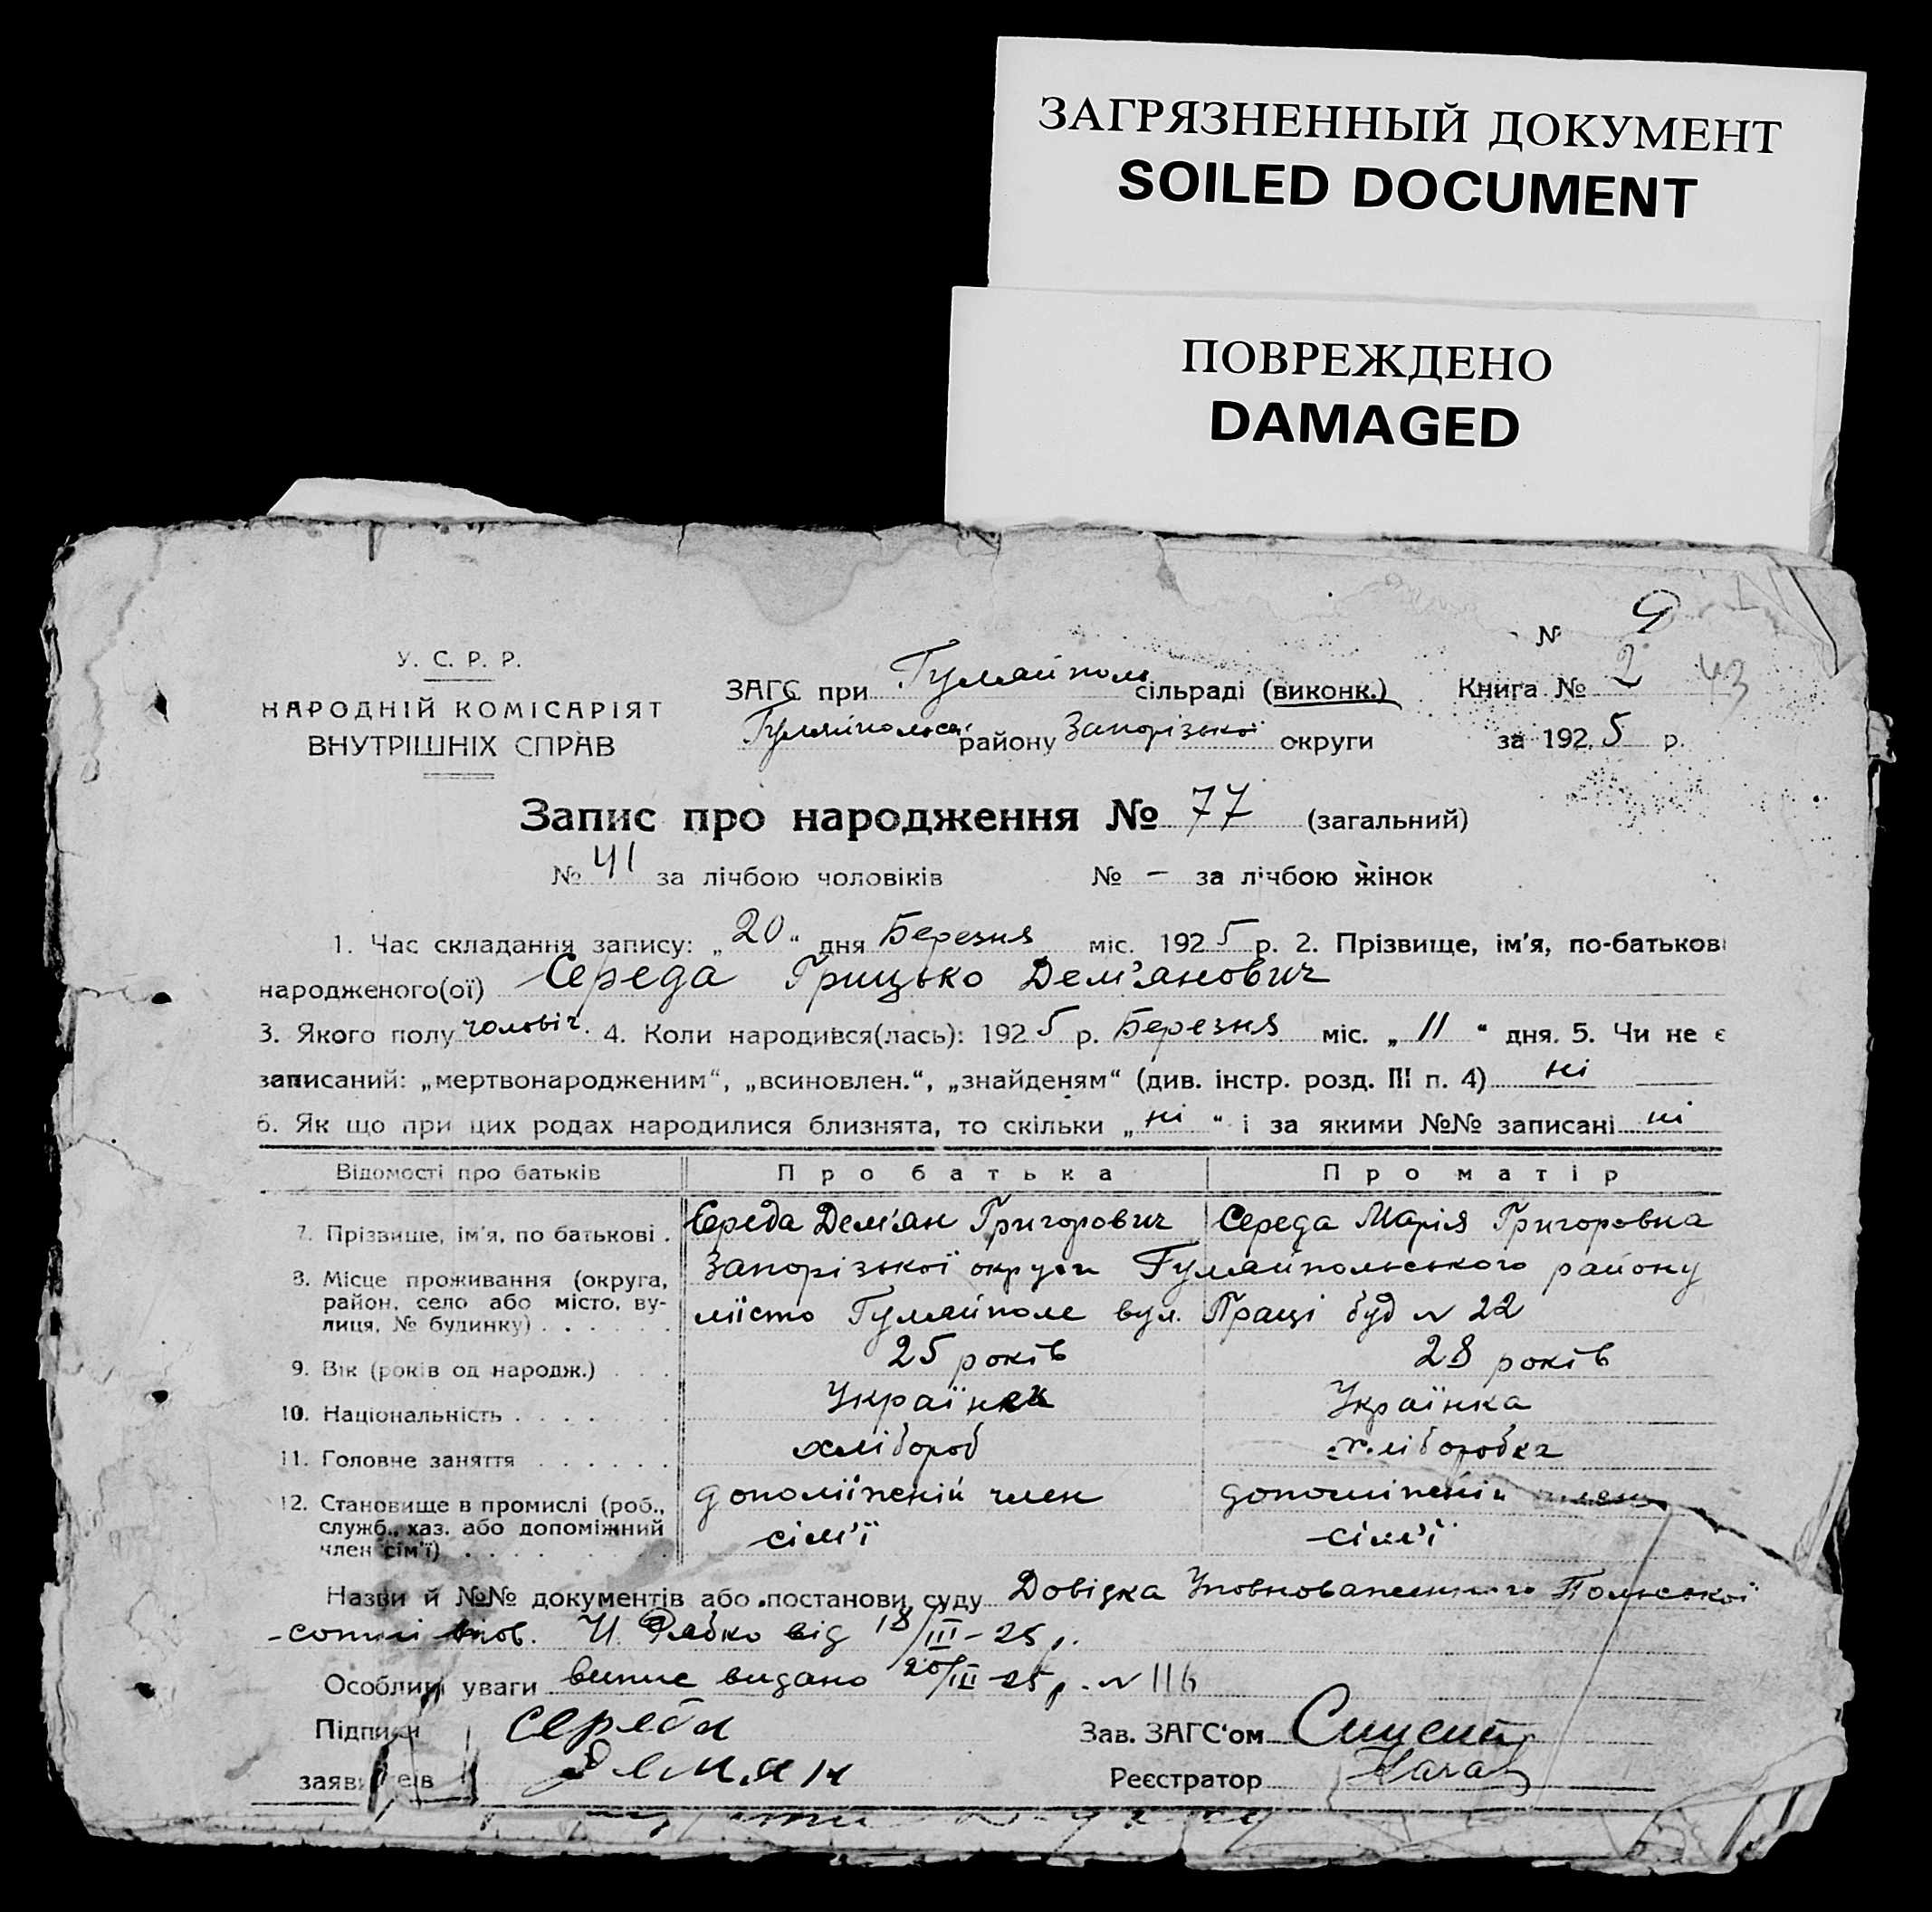 ЗАГРЯЗНЕННЫЙ ДОКУМЕНТ
SOILED DOCUMENT
ПОВРЕЖДЕНО
DAMAGED
№ 9
У. С. Р. Р.
НАРОДНІЙ КОМІСАРІЯТ
ВНУТРІШНІХ СПРАВ
ЗАГС при Гуляйполь сільраді (виконк.)
Книга № 2 43
Гуляйпольськ району Запорізької округи
за 1925 р.
Запис про народження № 77 (загальний)
№ 41 за лічбою чоловіків № – за лічбою жінок
1. Час складання запису: „20“ дня Березня міс. 1925 р. 2. Прізвище, ім'я, по-батькові
народженого(ої) Середа Грицько Дем'янович
3. Якого полу чоловіч. 4. Коли народився(лась): 1925 р. Березня міс. „11“ дня. 5. Чи не є
записаний: „мертвонародженим“, „всиновлен.“, „знайденям“ (див. інстр. розд. III п. 4) ні
6. Як що при цих родах народилися близнята, то скільки „ні“ і за якими №№ записані ні
Відомості про батьків Про батька Про матір
7. Прізвище, ім'я, по батькові . Середа Дем'ян Григорович Середа Марія Григоровна
8. Місце проживання (округа, район, село або місто, вулиця, № будинку) Запорізької округи Гуляйпольського району
місто Гуляйполе вул. Праці буд № 22
9. Вік (років од народж.) 25 років 28 років
10. Національність Українец Українка
11. Головне заняття хлібороб хліборобка
12. Становище в промислі (роб., служб., хаз. або допоміжний член сім'ї) допоміжній член сім'ї допоміжній член сім'ї
Назви й №№ документів або постанови суду Довідка Уповноваженного Польської
сотні упов. И. Рябко від 18/III-25 р.
Особливі уваги випис видано 20/III-25 р. № 116
Підписи Середа
Зав. ЗАГС'ом
заявителів Демян
Реєстратор